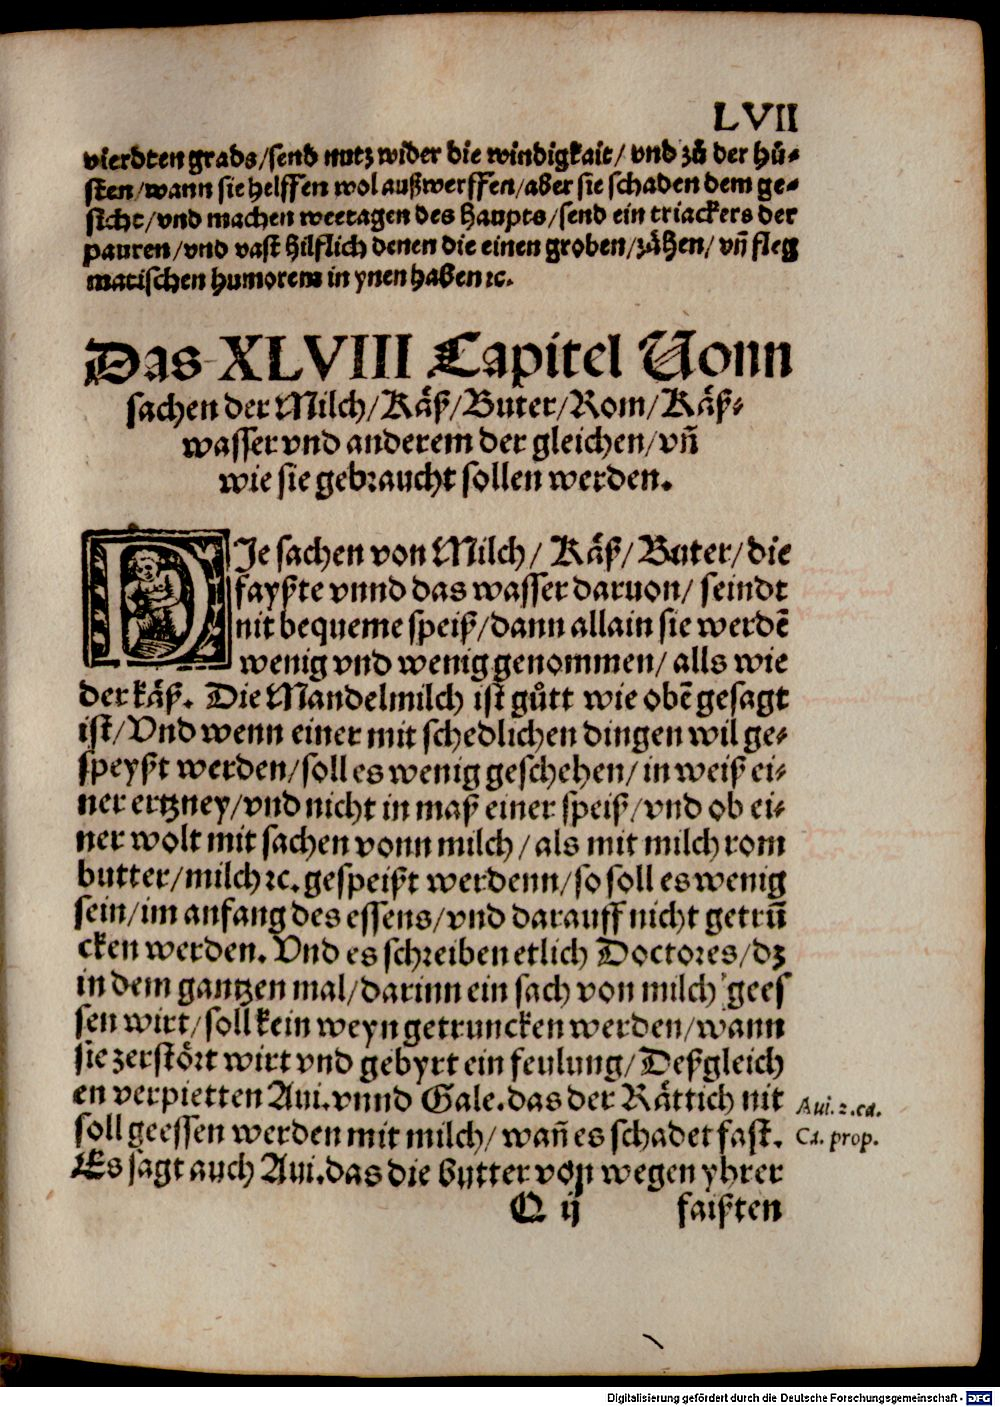 LVII
vierdten grads/send nutz wider die windigkait/ vnd zů der hů-
sten/wann sie helffen wol außwerffen/aber sie schaden dem ge-
sicht/vnd machen weetagen des haupts/send ein triackers der
pauren/vnd vast hilflich denen die einen groben/zähen/ vñ fleg
matischen humorem in ynen haben ꝛc.
Das XLVIII Capitel Vonn
sachen der Milch/Käß/Buter/Rom/Käß-
wasser vnd anderem der gleichen/vñ
wie sie gebraucht sollen werden.
DIe sachen von Milch/ Käß/ Buter/die
fayßte vnnd das wasser daruon/ seindt
nit bequeme speiß/dann allain sie werdē
wenig vnd wenig genommen/ alls wie
der käß. Die Mandelmilch ist gůtt wie obē gesagt
ist/Vnd wenn einer mit schedlichen dingen wil ge-
speyßt werden/soll es wenig geschehen/ in weiß ei-
ner ertzney/vnd nicht in maß einer speiß/vnd ob ei-
ner wolt mit sachen vonn milch/als mit milch rom
butter/milch ꝛc. gespeißt werdenn/so soll es wenig
sein/im anfang des essens/vnd darauff nicht getrū
cken werden. Vnd es schreiben etlich Doctores/dz
in dem gantzen mal/darinn ein sach von milch gees
sen wirt/soll kein weyn getruncken werden/wann
sie zerstört wirt vnd gebyrt ein feulung/Deßgleich
en verpietten Aui.vnnd Gale.das der Rättich nit
soll geessen werden mit milch/wañ es schadet fast.
Es sagt auch Aui.das die butter von wegen yhrer
Aui. 2. ca.
Ca. prop.
Q ij
faißten
Digitalisierung gefördert durch die Deutsche Forschungsgemeinschaft - DFG